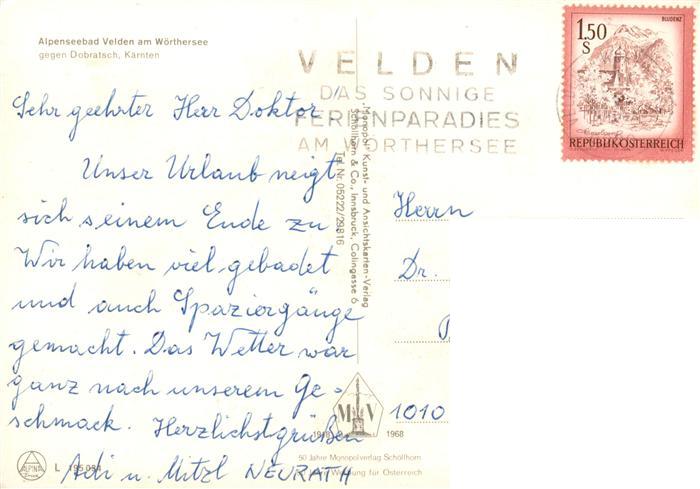 Alpenseebad Velden am Wörthersee
gegen Dobratsch, Kärnten
VELDEN
DAS SONNIGE
FERIENPARADIES
AM WÖRTHERSEE
1.50
S
BLUDENZ
REPUBLIK ÖSTERREICH
Sehr geehrter Herr Doktor
Unser Urlaub neigt
sich seinem Ende zu
Wir haben viel gebadet
und auch Spaziergänge
gemacht. Das Wetter war
ganz nach unserem Ge-
schmack. Herzlichst grüßen
Adi u. Mitzl NEURATH
Monopol- Kunst- und Ansichtskarten-Verlag
Schöllhorn & Co., Innsbruck, Colingasse 6
Tel. Nr. 05222/29816
Herrn
Dr.
1010
M V
1918 1968
50 Jahre Monopolverlag Schöllhorn
50 Jahre Werbung für Österreich
ALPINA
L 195 084